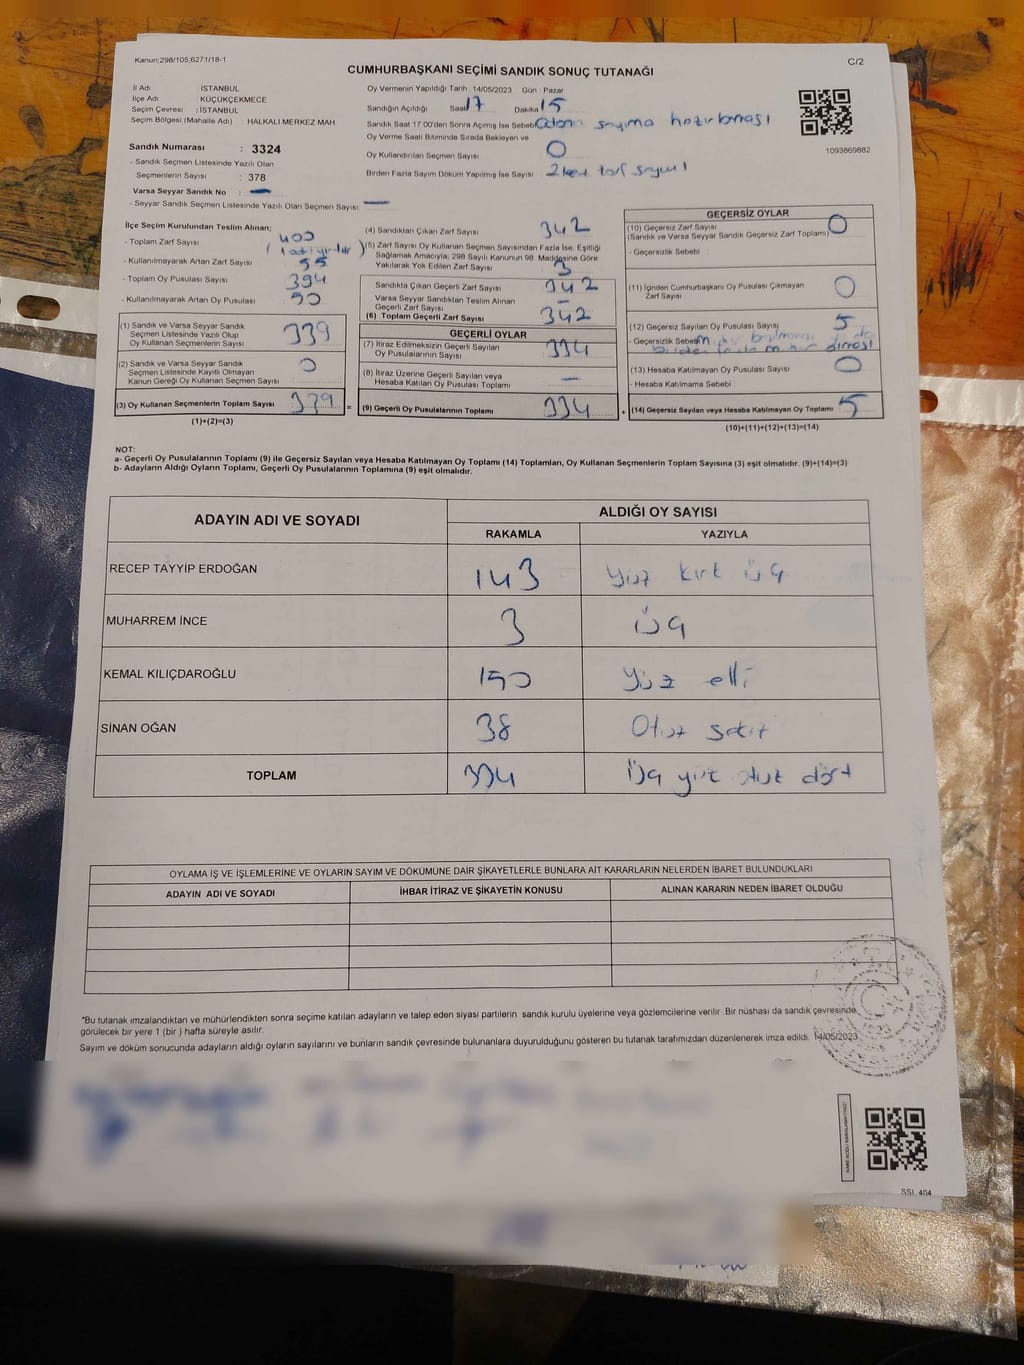 Kanun:298/105,6271/18-1
C/2
CUMHURBAŞKANI SEÇİMİ SANDIK SONUÇ TUTANAĞI
İl Adı : İSTANBUL
İlçe Adı : KÜÇÜKÇEKMECE
Seçim Çevresi : İSTANBUL
Seçim Bölgesi (Mahalle Adı) : HALKALI MERKEZ MAH.
Sandık Numarası : 3324
- Sandık Seçmen Listesinde Yazılı Olan
Seçmenlerin Sayısı : 378
Varsa Seyyar Sandık No : —
- Seyyar Sandık Seçmen Listesinde Yazılı Olan Seçmen Sayısı: —
Oy Vermenin Yapıldığı Tarih : 14/05/2023 Gün : Pazar
Sandığın Açıldığı Saat 17 Dakika 15
Sandık Saat 17:00'den Sonra Açımış İse Sebebi sayıma hazırlaması
Oy Verme Saati Bitiminde Sırada Bekleyen ve
Oy Kullandırılan Seçmen Sayısı 0
Birden Fazla Sayım Döküm Yapılmış İse Sayısı 2
1093869882
İlçe Seçim Kurulundan Teslim Alınan;
- Toplam Zarf Sayısı 400
- Kullanılmayarak Artan Zarf Sayısı 55
- Toplam Oy Pusulası Sayısı 394
- Kullanılmayarak Artan Oy Pusulası
(1) Sandık ve Varsa Seyyar Sandık
Seçmen Listesinde Yazılı Olup
Oy Kullanan Seçmenlerin Sayısı 339
(2) Sandık ve Varsa Seyyar Sandık
Seçmen Listesinde Kayıtlı Olmayan
Kanun Gereği Oy Kullanan Seçmen Sayısı 0
(3) Oy Kullanan Seçmenlerin Toplam Sayısı 339 =
(1)+(2)=(3)
(4) Sandıktan Çıkan Zarf Sayısı 342
(5) Zarf Sayısı Oy Kullanan Seçmen Sayısından Fazla İse, Eşitliği
Sağlamak Amacıyla; 298 Sayılı Kanunun 98. Maddesine Göre
Yakılarak Yok Edilen Zarf Sayısı 3
Sandıkta Çıkan Geçerli Zarf Sayısı 342
Varsa Seyyar Sandıktan Teslim Alınan
Geçerli Zarf Sayısı –
(6) Toplam Geçerli Zarf Sayısı 342
GEÇERLİ OYLAR
(7) İtiraz Edilmeksizin Geçerli Sayılan
Oy Pusulalarının Sayısı 334
(8) İtiraz Üzerine Geçerli Sayılan veya
Hesaba Katılan Oy Pusulası Toplamı —
(9) Geçerli Oy Pusulalarının Toplamı 334 +
GEÇERSİZ OYLAR
(10) Geçersiz Zarf Sayısı 0
(Sandık ve Varsa Seyyar Sandık Geçersiz Zarf Toplamı)
- Geçersizlik Sebebi :
(11) İçinden Cumhurbaşkanı Oy Pusulası Çıkmayan
Zarf Sayısı 0
(12) Geçersiz Sayılan Oy Pusulası Sayısı 5
- Geçersizlik Sebebi
(13) Hesaba Katılmayan Oy Pusulası Sayısı 0
- Hesaba Katılmama Sebebi
(14) Geçersiz Sayılan veya Hesaba Katılmayan Oy Toplamı 5
(10)+(11)+(12)+(13)=(14)
NOT:
a- Geçerli Oy Pusulalarının Toplamı (9) ile Geçersiz Sayılan veya Hesaba Katılmayan Oy Toplamı (14) Toplamları, Oy Kullanan Seçmenlerin Toplam Sayısına (3) eşit olmalıdır. (9)+(14)=(3)
b- Adayların Aldığı Oyların Toplamı, Geçerli Oy Pusulalarının Toplamına (9) eşit olmalıdır.
ADAYIN ADI VE SOYADI
ALDIĞI OY SAYISI
RAKAMLA YAZIYLA
RECEP TAYYİP ERDOĞAN 143 Yüz kırk üç
MUHARREM İNCE 3 üç
KEMAL KILIÇDAROĞLU 150 Yüz elli
SİNAN OĞAN 38 Otuz sekiz
TOPLAM 334 Üç yüz otuz dört
OYLAMA İŞ VE İŞLEMLERİNE VE OYLARIN SAYIM VE DÖKÜMÜNE DAİR ŞİKAYETLERLE BUNLARA AİT KARARLARIN NELERDEN İBARET BULUNDUKLARI
ADAYIN ADI VE SOYADI İHBAR İTİRAZ VE ŞİKAYETİN KONUSU ALINAN KARARIN NEDEN İBARET OLDUĞU
*Bu tutanak imzalandıktan ve mühürlendikten sonra seçime katılan adayların ve talep eden siyasi partilerin sandık kurulu üyelerine veya gözlemcilerine verilir. Bir nüshası da sandık çevresinde
görülecek bir yere 1 (bir ) hafta süreyle asılır.
Sayım ve döküm sonucunda adayların aldığı oyların sayılarını ve bunların sandık çevresinde bulunanlara duyurulduğunu gösteren bu tutanak tarafımızdan düzenlenerek imza edildi. 14/05/2023
SSI. 404